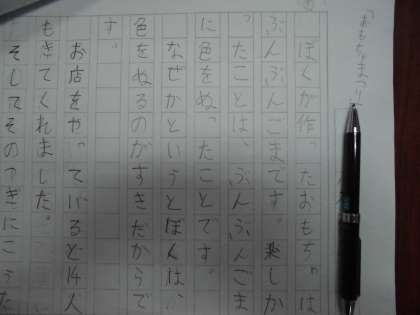 「おもちゃまつり
ぼくが作ったおもちゃは
ぶんぶんごまです。楽しか
ったことは、ぶんぶんごま
に色をぬったことです。
なぜかというとぼくは、
色をぬるのがすきだからで
す。
お店をやっていると14人
もきてくれました。
そしてそのつぎにこうた